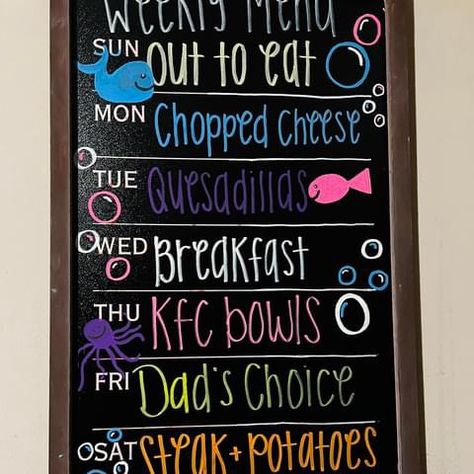 Weekly Menu
SUN out to eat
MON Chopped Cheese
TUE Quesadillas
WED Breakfast
THU KFC bowls
FRI Dad's Choice
SAT Steak + Potatoes